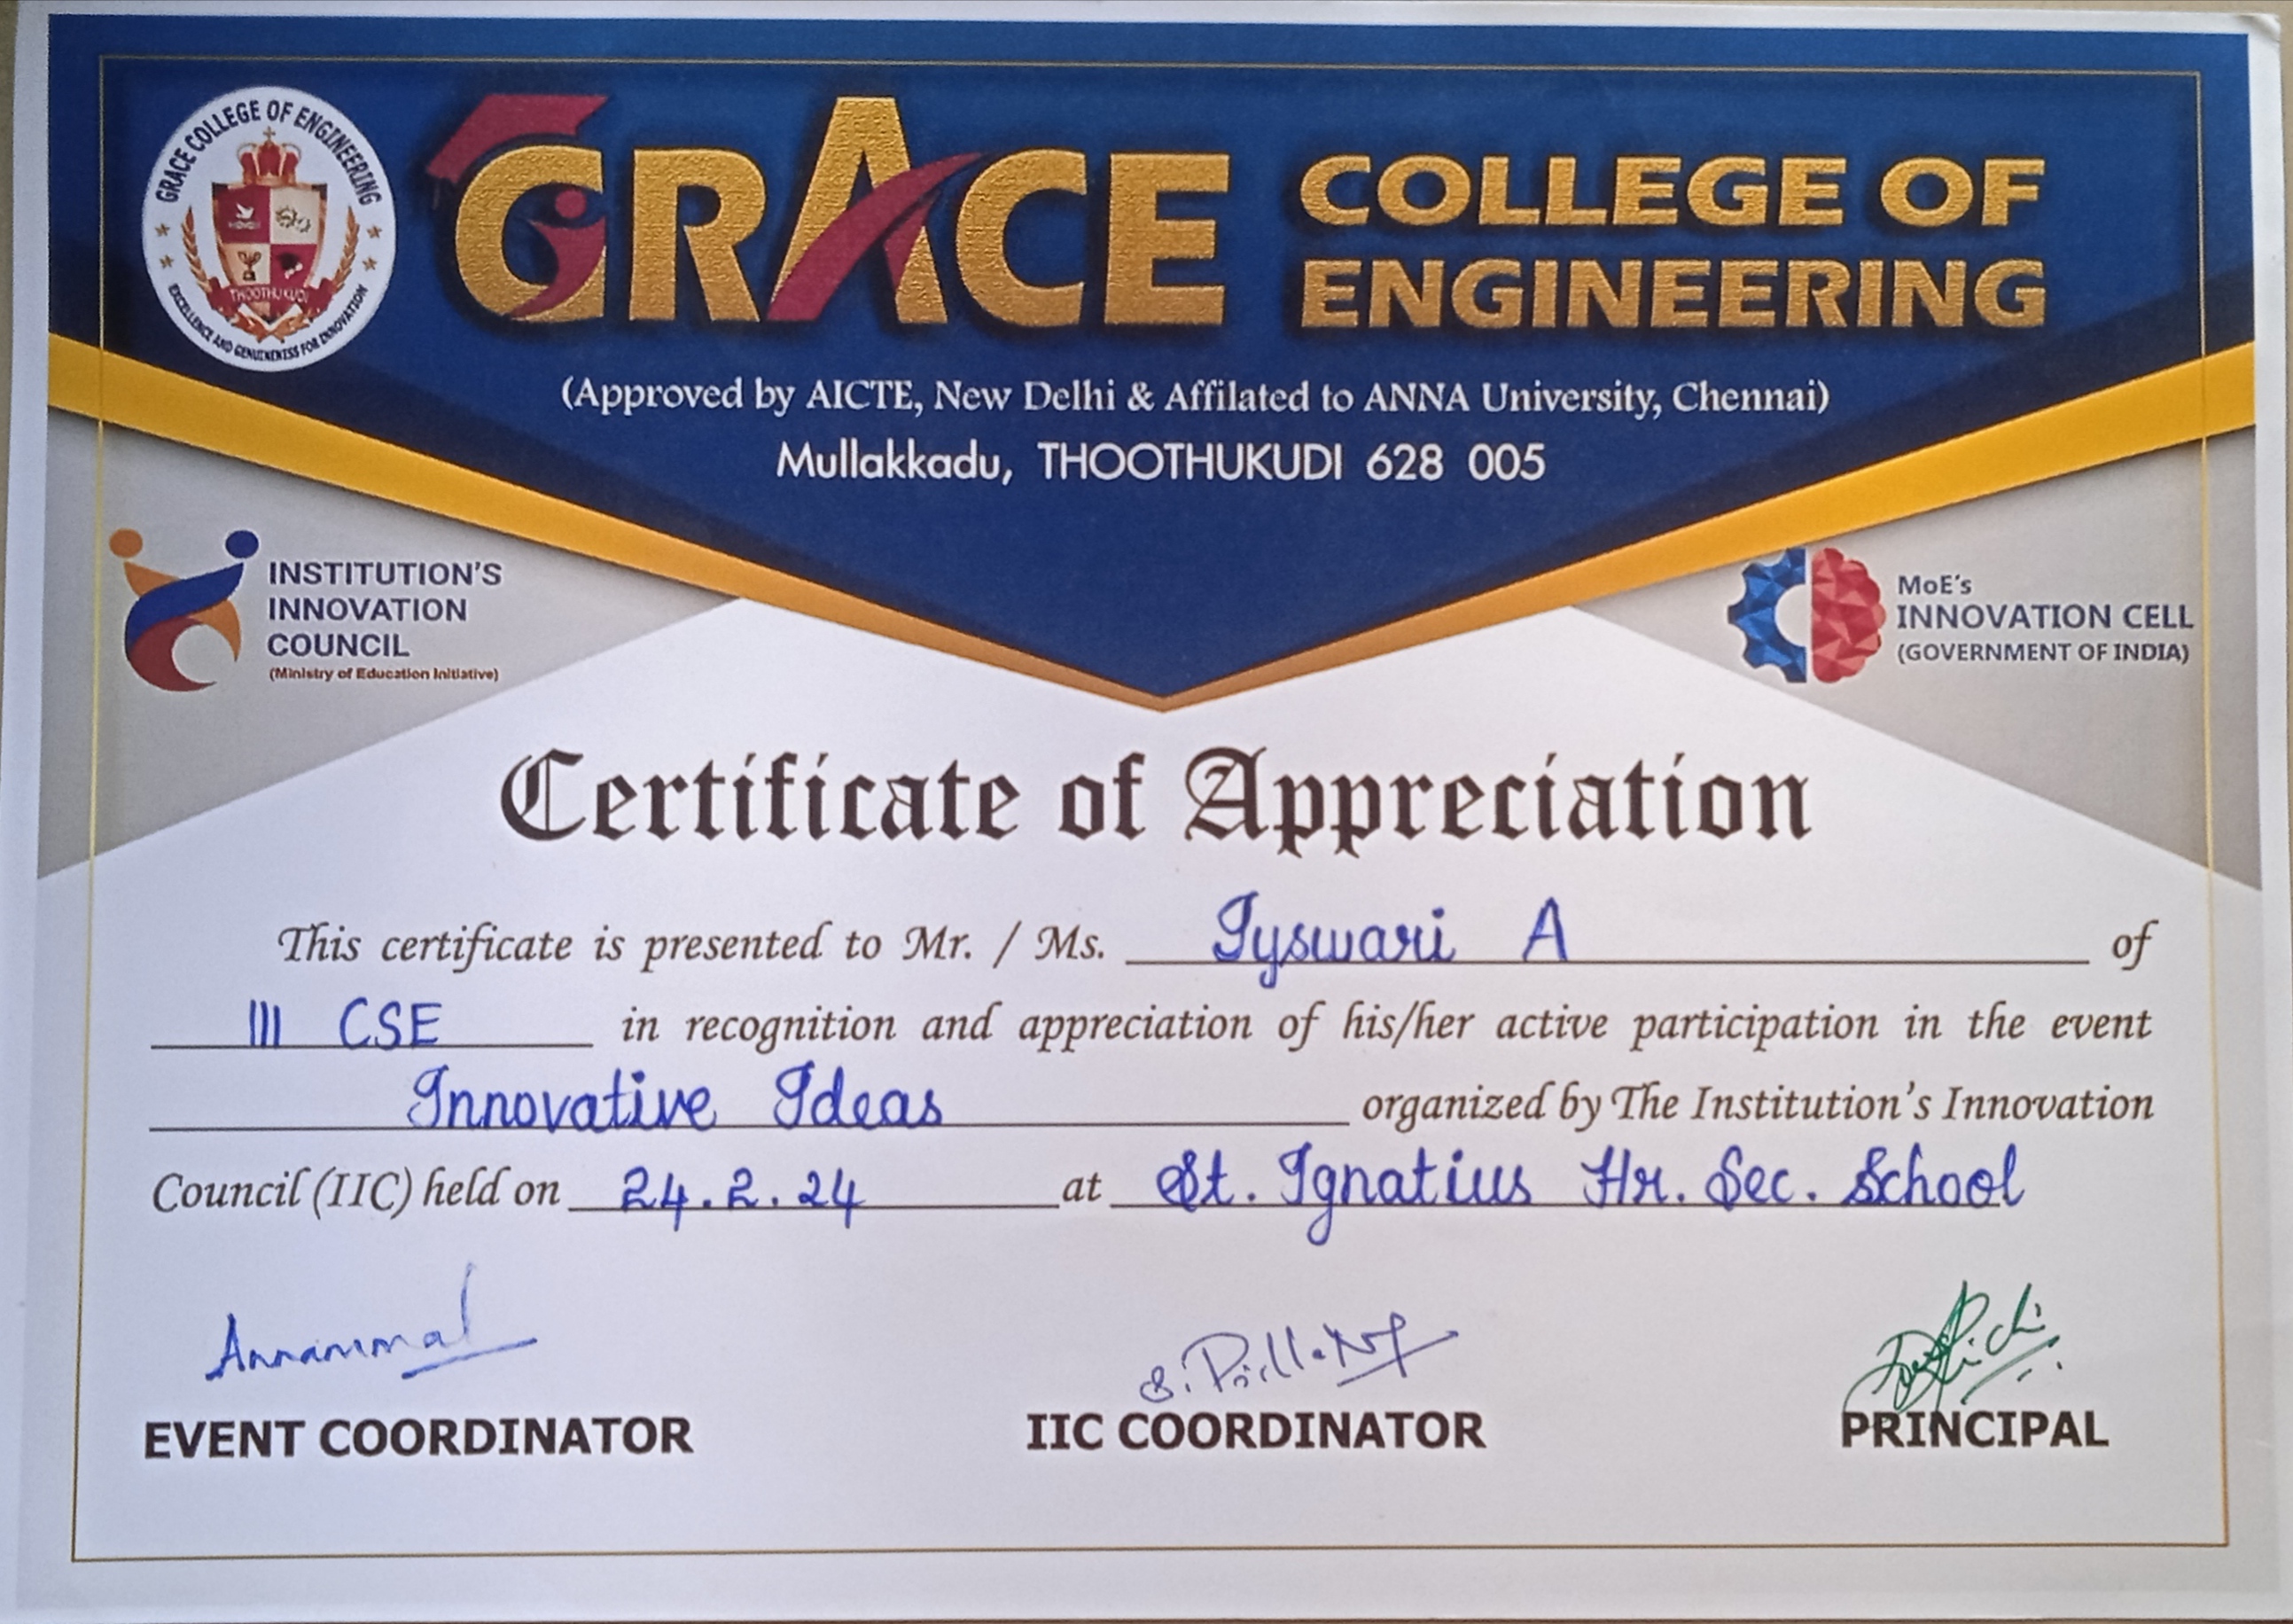 GRACE COLLEGE OF ENGINEERING
THOOTHUKUDI
EXCELLENCE AND GENUINENESS FOR INNOVATION
GRACE COLLEGE OF
ENGINEERING
(Approved by AICTE, New Delhi & Affilated to ANNA University, Chennai)
Mullakkadu, THOOTHUKUDI 628 005
INSTITUTION'S
INNOVATION
COUNCIL
(Ministry of Education Initiative)
MoE's
INNOVATION CELL
(GOVERNMENT OF INDIA)
Certificate of Appreciation
This certificate is presented to Mr. / Ms. Iyswari A of
III CSE in recognition and appreciation of his/her active participation in the event
Innovative Ideas organized by The Institution's Innovation
Council (IIC) held on 24.2.24 at St. Ignatius Hr. Sec. School
Annammal
EVENT COORDINATOR
IIC COORDINATOR
PRINCIPAL